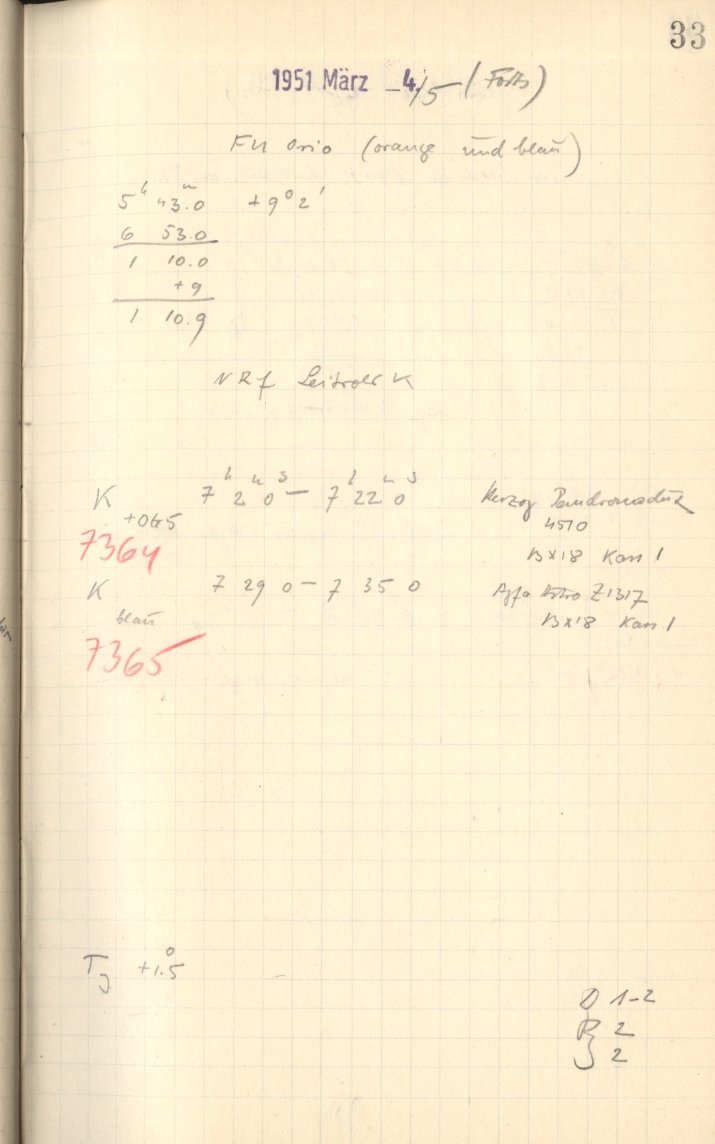 33
1951 März 4./5 (Forts)
FU Orio (orange und blau)
5ʰ 43.0ᵐ +9° 2'
6 53.0
1 10.0
+9
1 10.9
NRf Leitrohr K
K 7ʰ 2ᵐ 0ˢ — 7ʰ 22ᵐ 0ˢ Herzog
+OG5 4510
7364 13x18 Kass 1
K 7 29 0 — 7 35 0 Agfa Astro Z1317
blau 13x18 Kass 1
7365
T +1.5°
D 1-2
R 2
J 2